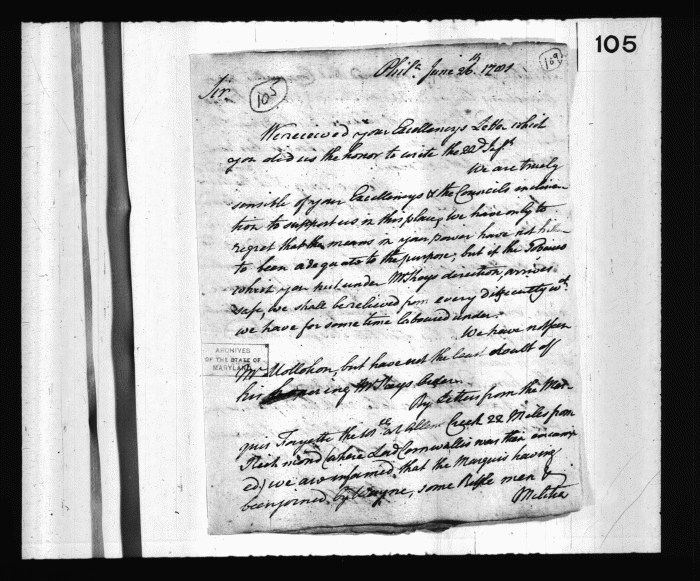 105
109
Phila. June 26th. 1781
Sir
105
We received your Excellencys Letter which
you did us the honor to write the 22d Inst.
We are truely
sensible of your Excellencys & the Councils inclina
tion to support us in this place, we have only to
regret that the means in your power have not
to been adequate to the purpose, but if the Tobacco
which you put under Mr Hays direction, arrives
safe, we shall be relieved from every difficulty wh.
we have for some time laboured under.
We have not seen
ARCHIVES
OF THE STATE OF
MARYLAND
Mr. but have not the least doubt of
his Mr Hays Letter
By Letters from the Mar
quis Fayette the at Allens Creek 22 Miles from
Richmond (where Lord Cornwallis was then encamp
ed) we are informed that the Marquis having
been joined by Wayne, some Rifle men &
Militia